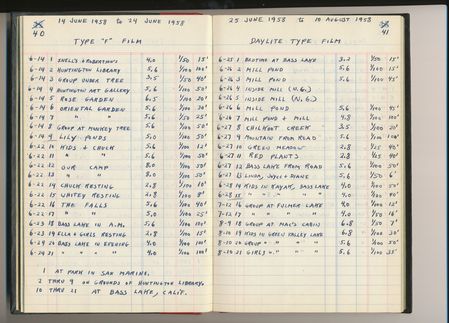 14 JUNE 1958 to 24 JUNE 1958
40
TYPE "F" FILM
6-14 1 SNELL'S & ROBERTSON'S 4.0 1/50 15'
6-14 2 HUNTINGTON LIBRARY 5.6 1/100 100'
6-14 3 GROUP UNDER TREE 3.5 1/50 40'
6-14 4 HUNTINGTON ART GALLERY 5.6 1/100 50'
6-14 5 ROSE GARDEN 6.5 1/100 20'
6-14 6 ORIENTAL GARDEN 5.6 1/100 30'
6-14 7 " " 5.6 1/50 25'
6-14 8 GROUP AT MONKEY TREE 5.6 1/100 50'
6-14 9 LILY PONDS 5.0 1/100 50'
6-22 10 KIDS & CHUCK 5.6 1/100 12'
6-22 11 " " " 8.0 1/100 50'
6-22 12 OUR CAMP 8.0 1/50 30'
6-22 13 " " 8.0 1/50 50'
6-22 14 CHUCK RESTING 2.8 1/50 10'
6-22 15 WHITEY RESTING 2.8 1/100 8'
6-22 16 THE FALLS 5.6 1/100 40'
6-22 17 " " 5.0 1/100 25'
6-23 18 BASS LAKE IN A.M. 5.6 1/100 110'
6-23 19 ELLA & GIRLS RESTING 2.8 1/100 15'
6-24 20 BASS LAKE IN EVENING 4.0 1/100 100'
6-24 21 " " " " 4.0 1/100 100'
1 AT PARK IN SAN MARINO.
2 THRU 9 ON GROUNDS OF HUNTINGTON LIBRARY.
10 THRU 21 AT BASS LAKE, CALIF.
25 JUNE 1958 to 10 AUGUST 1958
41
DAYLITE TYPE FILM
6-25 1 BEDTIME AT BASS LAKE 3.2 1/50 15'
6-26 2 MILL POND 5.6 1/100 15'
6-26 3 MILL POND 5.6 1/100 45'
6-26 4 INSIDE MILL (N.G.)
6-26 5 INSIDE MILL (N.G.)
6-26 6 MILL POND 5.6 1/100 45'
6-26 7 MILL POND & MILL 4.8 1/100 100'
6-27 8 CHILKOOT CREEK 3.5 1/100 20'
6-27 9 MOUNTAIN FROM ROAD 5.6 1/100 100'
6-27 10 GREEN MEADOW 2.8 1/25 40'
6-27 11 RED PLANTS 2.8 1/25 40'
6-27 12 BASS LAKE FROM ROAD 5.6 1/100 50'
6-27 13 LINDA, JOYCE & DIANE 5.6 1/50 6'
6-28 14 KIDS IN KAYAK, BASS LAKE 4.0 1/100 50'
6-28 15 " " " " " 4.0 1/100 40'
7-12 16 GROUP AT FULMER LAKE 4.0 1/100 12'
7-12 17 " " " " 4.0 1/50 16'
8-9 18 GROUP AT MAC'S CABIN 6.8 1/50 7'
8-10 19 KIDS IN GREEN VALLEY LAKE 6.8 1/100 30'
8-10 20 GROUP " " " " 5.6 1/100 50'
8-10 21 GIRLS " " " 5.6 1/100 35'